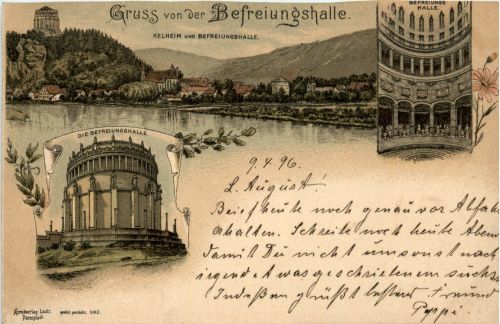 Gruss von der Befreiungshalle.
KELHEIM UND BEFREIUNGSHALLE.
BEFREIUNGS
HALLE.
DIE BEFREIUNGSHALLE
9.4.96.
L. August!
Brief heute noch genau vor Abfahrt
erhalten. Schreibe noch heute Abend
damit Du nicht umsonst nach
irgend etwas geschriebenem suchst.
Indeßen grüßt bestens Freund
Peppi.
gesetzl. geschützt. 592.